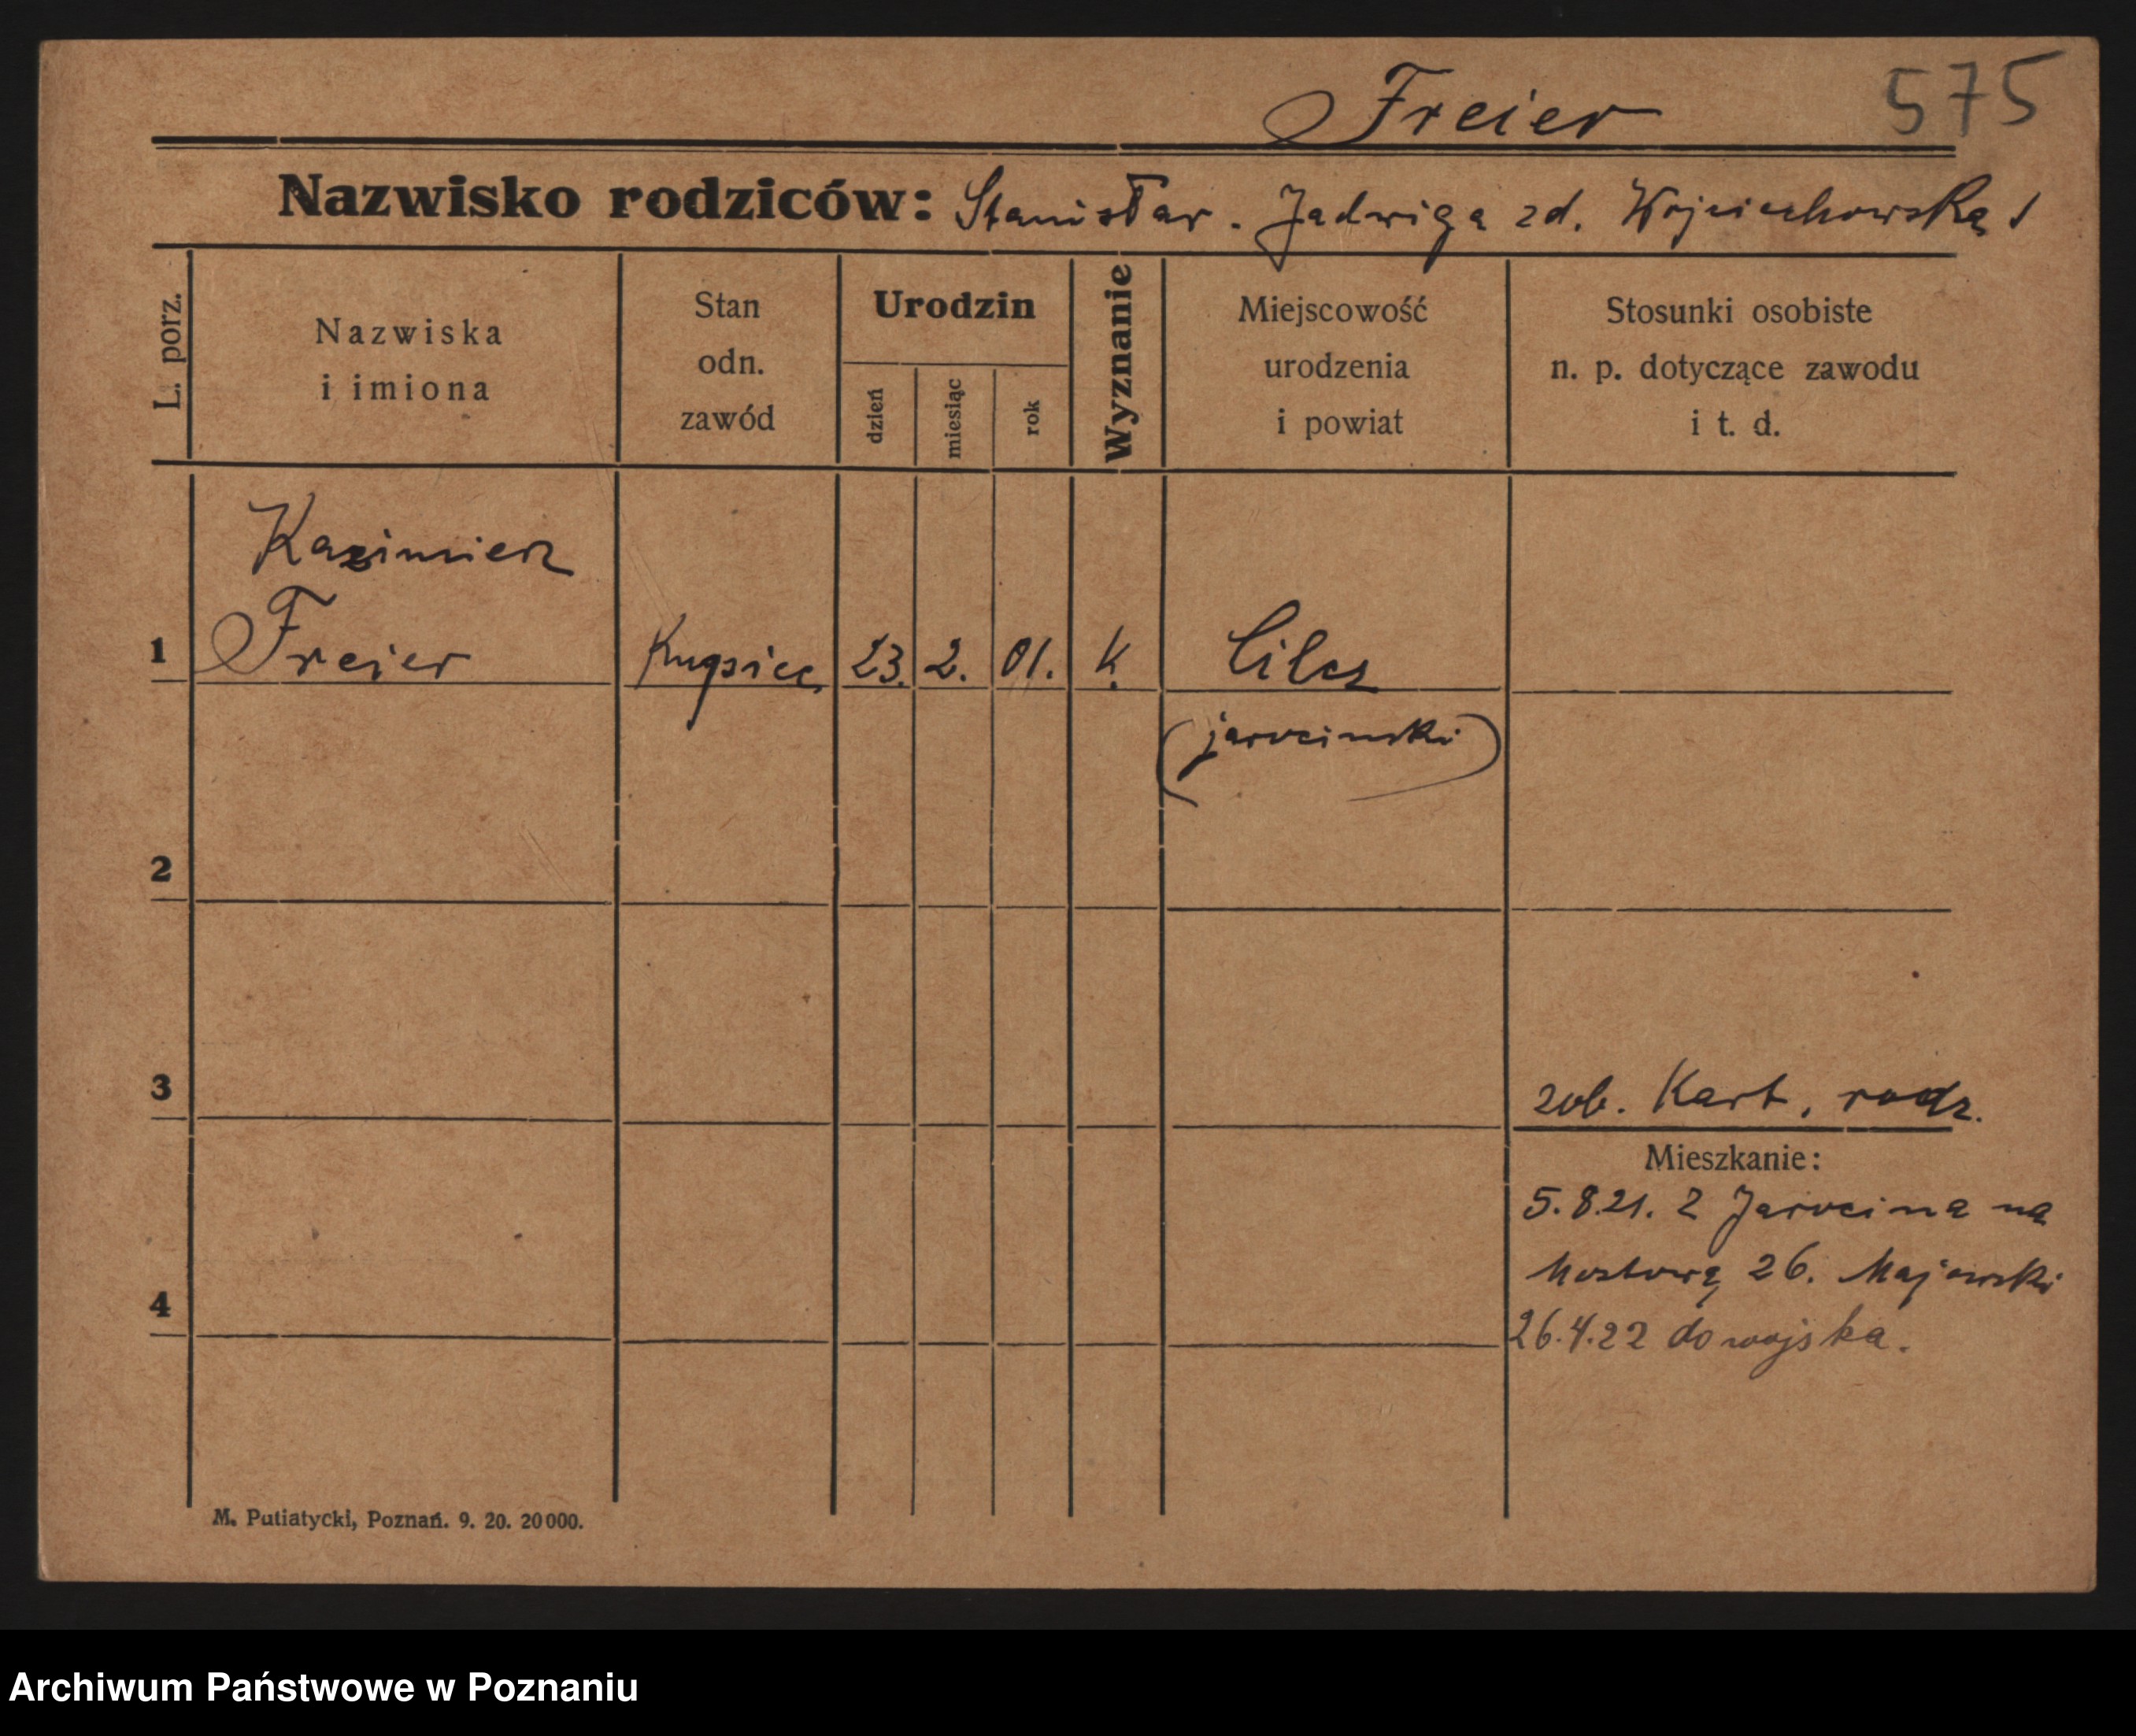 Freier 575
Nazwisko rodziców: Stanisław. Jadwiga zd. Wojciechowską
L. porz.
Nazwiska
i imiona
Stan
odn.
zawód
Urodzin
dzień
miesiąc
rok
Wyznanie
Miejscowość
urodzenia
i powiat
Stosunki osobiste
n. p. dotyczące zawodu
i t. d.
Kazimierz
1 Freier Kupiec 23. 2. 01. K. Cilcz
(jarocinski)
2
3
zob. Kart. rodz.
Mieszkanie:
5.8.21. z Jarocina na
Mostową 26. Majewski
4
26.4.22 do wojska.
M. Putiatycki, Poznań. 9. 20. 20000.
Archiwum Państwowe w Poznaniu